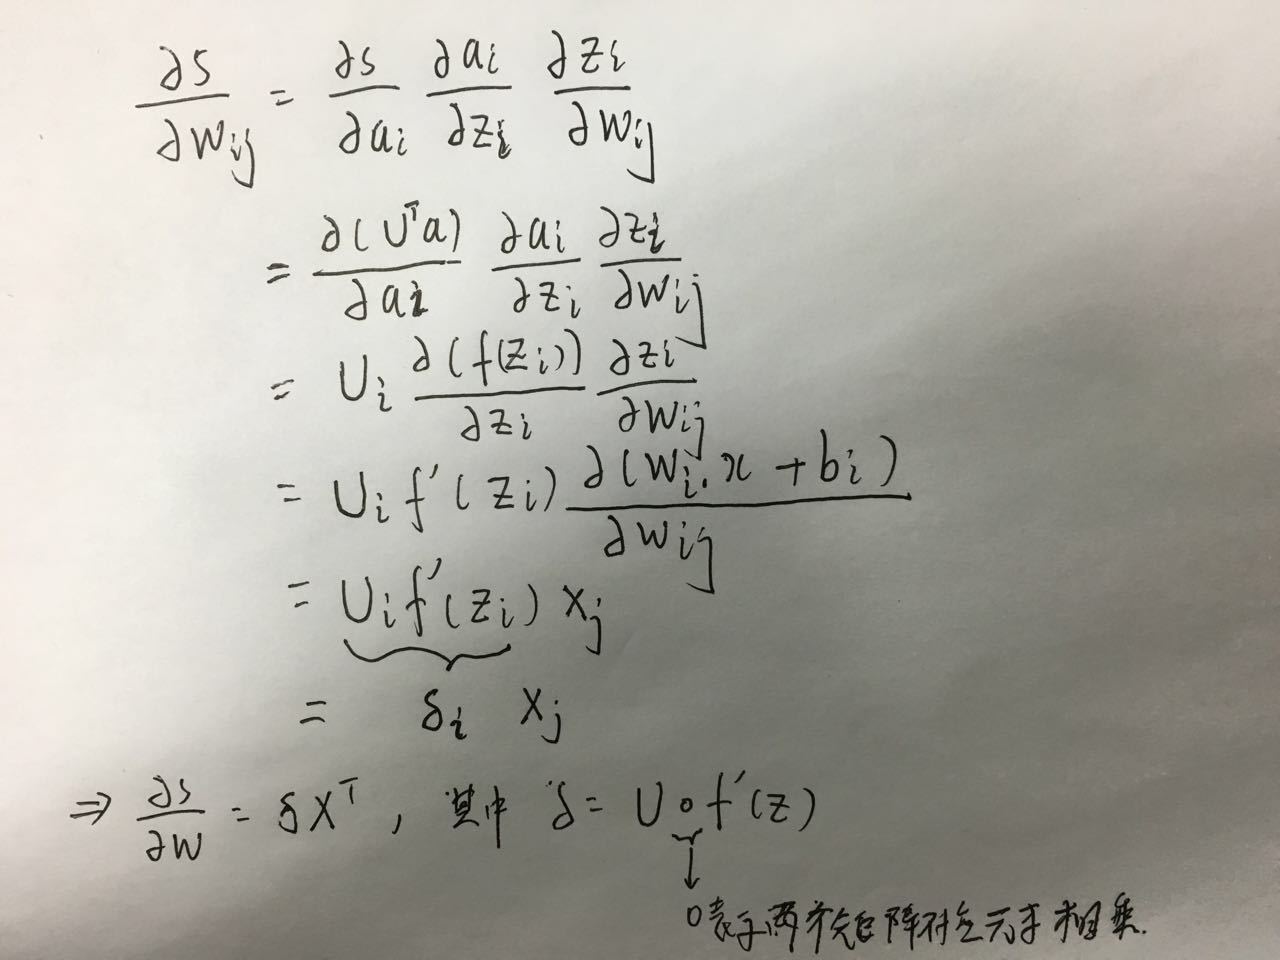 ∂s/∂Wij = ∂s/∂ai ∂ai/∂zi ∂zi/∂Wij
= ∂(UᵀA)/∂ai ∂ai/∂zi ∂zi/∂Wij
= Ui ∂(f(zi))/∂zi ∂zi/∂Wij
= Ui f′(zi) ∂(Wi·x + bi)/∂Wij
= Ui f′(zi) xj
= δi xj
⇒ ∂s/∂W = δXᵀ, 其中 δ = U ∘ f′(z)
↓
∘表示两个矩阵对应元素相乘.